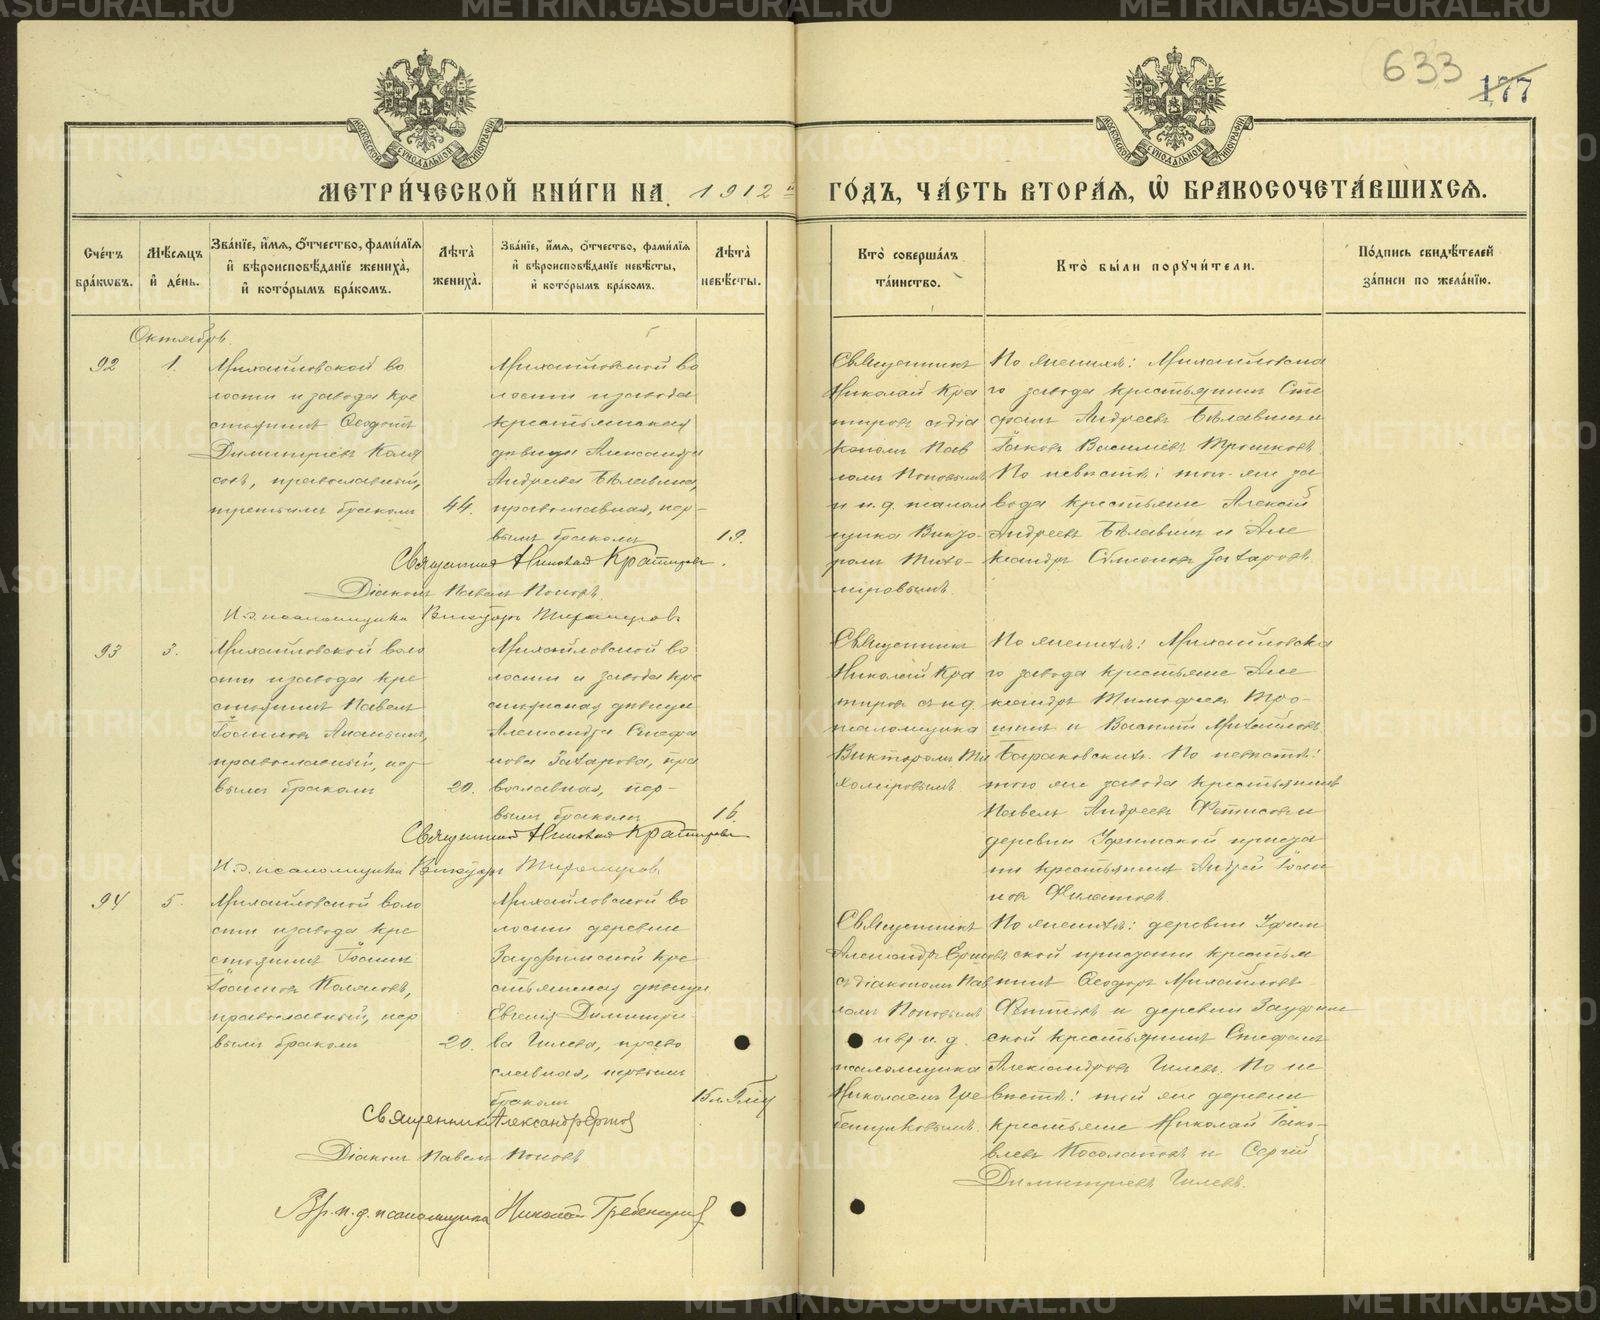 633
177
МОСКОВСКОЙ СѴНОДАЛЬНОЙ ТИПОГРАФІИ
МОСКОВСКОЙ СѴНОДАЛЬНОЙ ТИПОГРАФІИ
МЕТРИ́ЧЕСКОЙ КНИ́ГИ НА 1912 й
ГО́ДЪ, ЧА́СТЬ ВТОРА́Я, Ѡ҆ БРАКОСОЧЕТА́ВШИХСЯ.
Сче́тъ бра́кωвъ.
Мѣ́сяцъ и҆ де́нь.
Зва́нїе, и҆́мя, о҆́тчество, фами́лїя и҆ вѣроисповѣ́данїе жениха̀, и҆ кото́рымъ бра́комъ.
Лѣ́та̀ жениха̀.
Зва́нїе, и҆́мя, о҆́тчество, фами́лїя и҆ вѣроисповѣ́данїе невѣ́сты, и҆ кото́рымъ бра́комъ.
Лѣ́та̀ невѣ́сты.
Кто̀ соверша́лъ та́инство.
Кто̀ бы́ли порꙋчи́тели.
По́дпись свидѣ́телей за́писи по жела́нїю.
Октябрь.
92
1.
Михайловской во
лости и завода кре
стьянинъ Ѳеодотъ
Димитріевъ Коля
совъ, православный,
третьимъ бракомъ
44.
Михайловской во
лости и завода
крестьянская
дѣвица Александра
Андреева Бѣлавина,
православная, пер-
вымъ бракомъ
19.
Священникъ
Николай Кра
тировъ съ діа
кономъ Пав
ломъ Поповымъ
и и.д. псалом
щика Викто-
ромъ Тихо-
мировымъ.
По женихѣ: Михайловска
го завода крестьянинъ Сте
фанъ Андреевъ Бѣлавинъ и
Іаковъ Василіевъ Трошковъ.
По невѣстѣ: того-же за
вода крестьяне Алексій
Андреевъ Бѣлавинъ и Але
ксандръ Сѵмеоновъ Захаровъ.
Священникъ Николай Кратировъ
Діаконъ Павелъ Поповъ.
И.д. псаломщика Викторъ Тихомировъ.
93
3.
Михайловской воло
сти и завода кре
стьянинъ Павелъ
Іоанновъ Ананьинъ,
православный, пер-
вымъ бракомъ
20.
Михайловской во
лости и завода кре
стьянская дѣвица
Александра Стефа
нова Захарова, пра
вославная, пер-
вымъ бракомъ
16.
Священникъ
Николай Кра
тировъ съ и.д.
псаломщика
Викторомъ Ти
хомировымъ
По женихѣ: Михайловска
го завода крестьяне Але
ксандръ Тимоѳеевъ Тро-
шинъ и Василій Михайловъ
Бараковскихъ. По невѣстѣ:
того же завода крестьянинъ
Павелъ Андреевъ Фетисовъ и
деревни Уфимской приста
ни крестьянинъ Андрей Іоан
новъ Филатовъ.
Священникъ Николай Кратировъ
И.д. псаломщика Викторъ Тихомировъ.
94
5.
Михайловской воло
сти и завода кре
стьянинъ Іоаннъ
Іоанновъ Колясовъ,
православный, пер
вымъ бракомъ
20.
Михайловской во
лости деревни
Зауфимской кре
стьянская дѣвица
Евгенія Димитріе
ва Гилева, право
славная, первымъ
бракомъ
Священникъ
Александръ Ершовъ
съ діакономъ Пав
ломъ Поповымъ
и вр. и. д.
псаломщика
Николаемъ Гре
бенщиковымъ.
По женихѣ: деревни Уфим
ской пристани крестья
нинъ Ѳеодоръ Михайловъ
Фетисовъ и деревни Зауфим
ской крестьянинъ Стефанъ
Александровъ Гилевъ. По не
вѣстѣ: той же деревни
крестьяне Николай Іако-
влевъ Косолаповъ и Сергій
Димитріевъ Гилевъ.
Священникъ Александръ Ершовъ
Діаконъ Павелъ Поповъ
Вр. и. д. псаломщика Николай Гребенщиковъ
METRIKI.GASO-URAL.RU